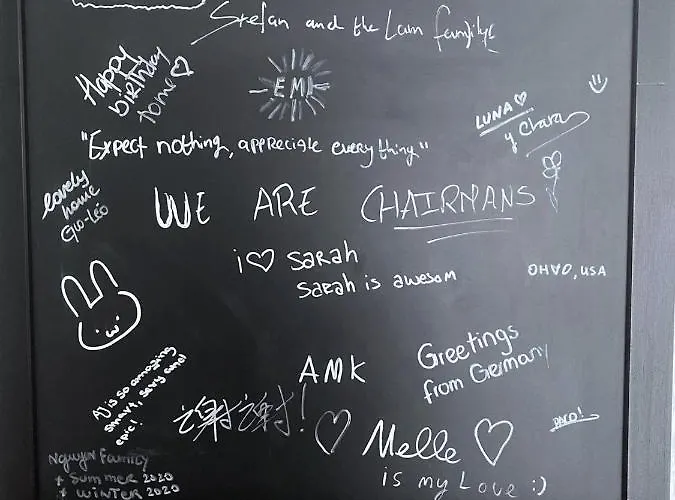 Stefan and the Lam family
Happy
birthday
EMI
LUNA ♡
y Clara
"Expect nothing, appreciate everything"
lovely
home
Gio-Leo
WE ARE CHAIRMANS
i ♡ sarah
sarah is awesom
OHIO, USA
AJ is so amazing
smart, sexy and
epic!
AMK
Greetings
from Germany
谢谢!
♡ Melle ♡
is my Love :)
PACO!
Nguyen Family
+ Summer 2020
+ WINTER 2020